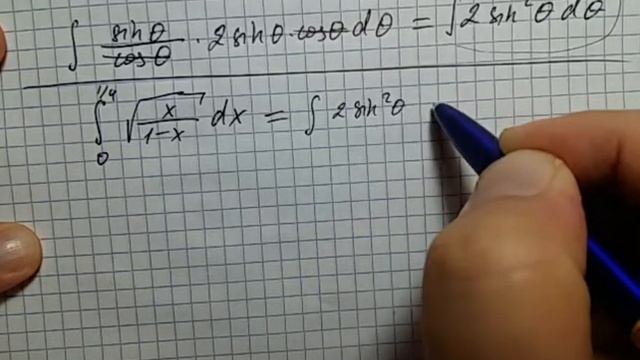 ∫ sinθ/cosθ · 2 sinθ cosθ dθ = ∫ 2 sin²θ dθ
∫₀^{1/4} √(x/(1-x)) dx = ∫ 2 sin²θ